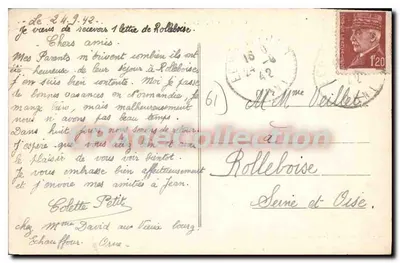 Le 24.7.42
Je viens de recevoir 1 lettre de Rolleboise.
Chers amis
Mes Parents m'écrivent combien ils ont
été heureux de leur séjour à Rolleboise
de bonnes vacances en Normandie. Je
mange bien, mais malheureusement
nous n'avons pas beau temps.
Dans huit jours nous serons de retour
J'espère que nous aurons
le plaisir de vous voir bientôt.
Je vous embrasse bien affectueusement
et j'envoie mes amitiés à Jean.
Colette Petit
chez Mme David au Vieux bourg
Echauffour Orne
61
16 8
42
1F20
M. Mme Veillet
à
Rolleboise
Seine et Oise.